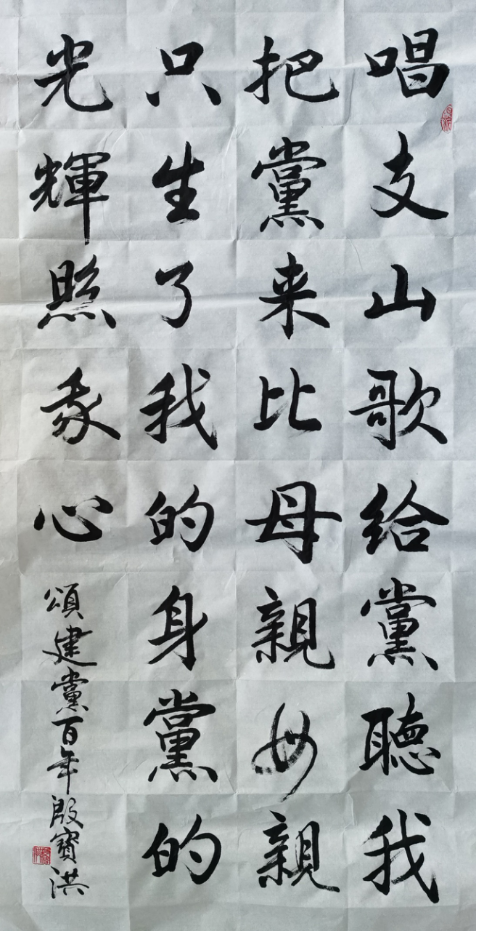 唱支山歌给黨聽我
把黨来比母親母親
只生了我的身黨的
光輝照我心
頌建黨百年殷寳洪